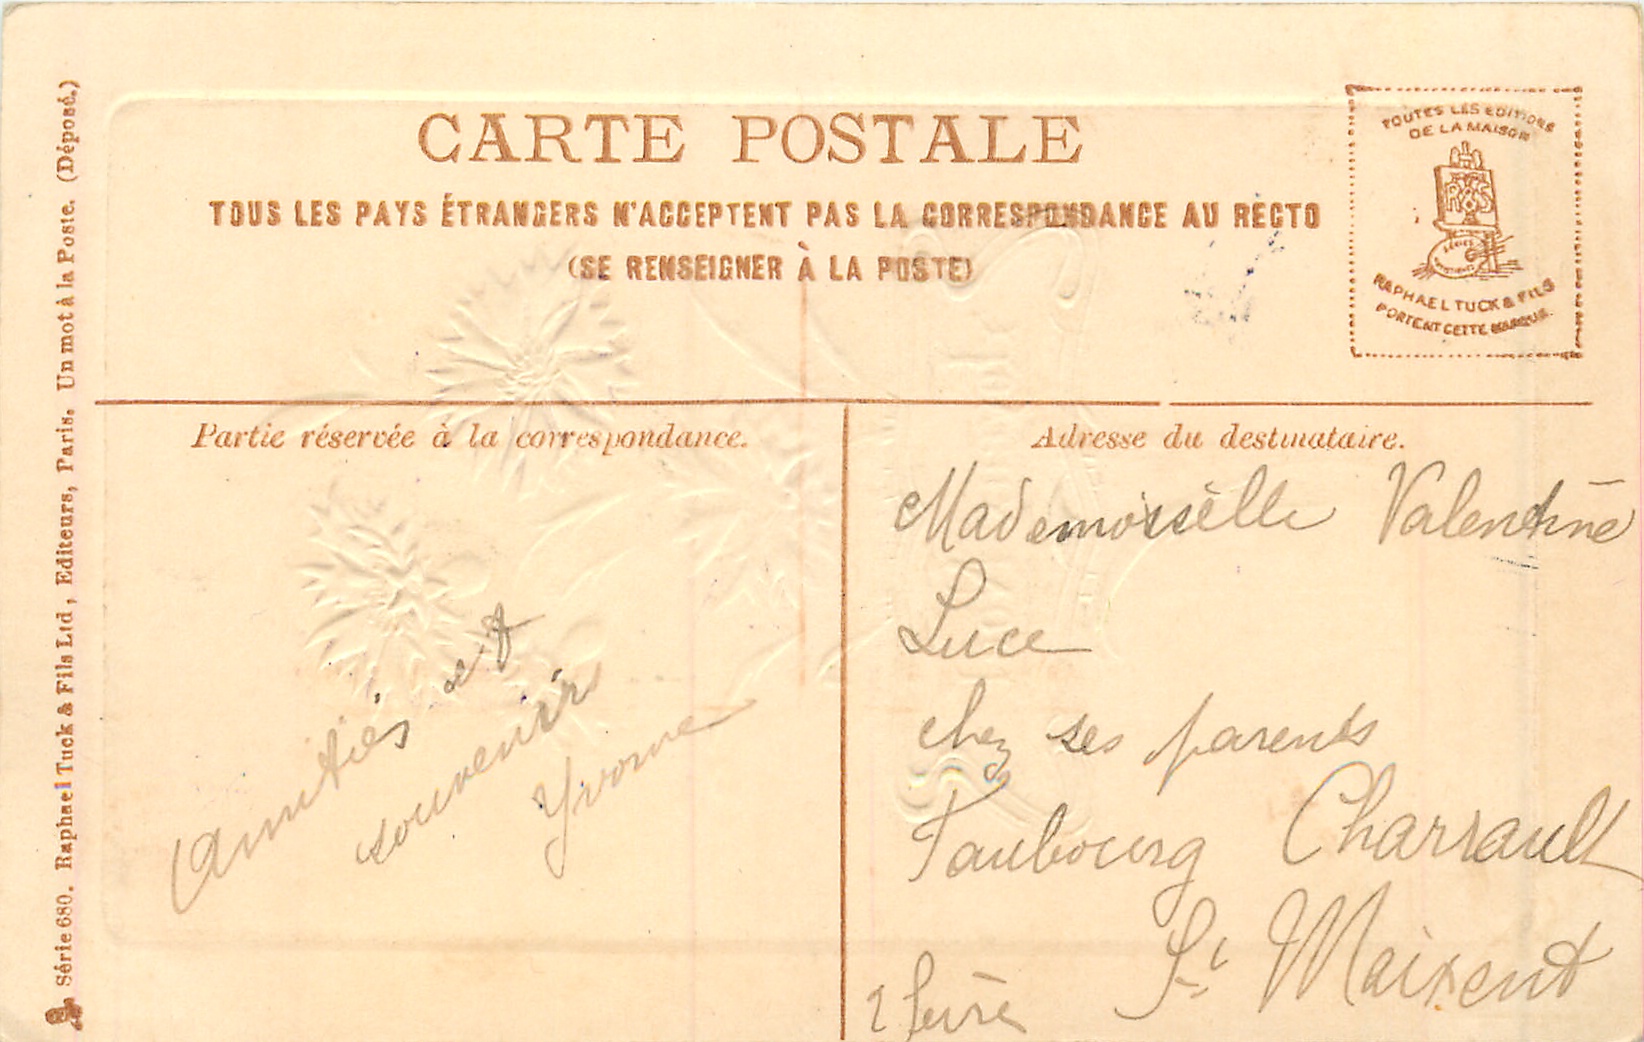 CARTE POSTALE
TOUS LES PAYS ÉTRANGERS N'ACCEPTENT PAS LA CORRESPONDANCE AU RECTO
(SE RENSEIGNER À LA POSTE)
TOUTES LES EDITIONS
DE LA MAISON
RAPHAEL TUCK & FILS
PORTENT CETTE MARQUE
Série 680. Raphael Tuck & Fils Ltd, Editeurs, Paris. Un mot à la Poste. (Déposé.)
Partie réservée à la correspondance.
Amitiés et
souvenir
Yvonne
Adresse du destinataire.
Mademoiselle Valentine
Luce
chez ses parents
Faubourg Charrault
St Maixent
2 Sèvres